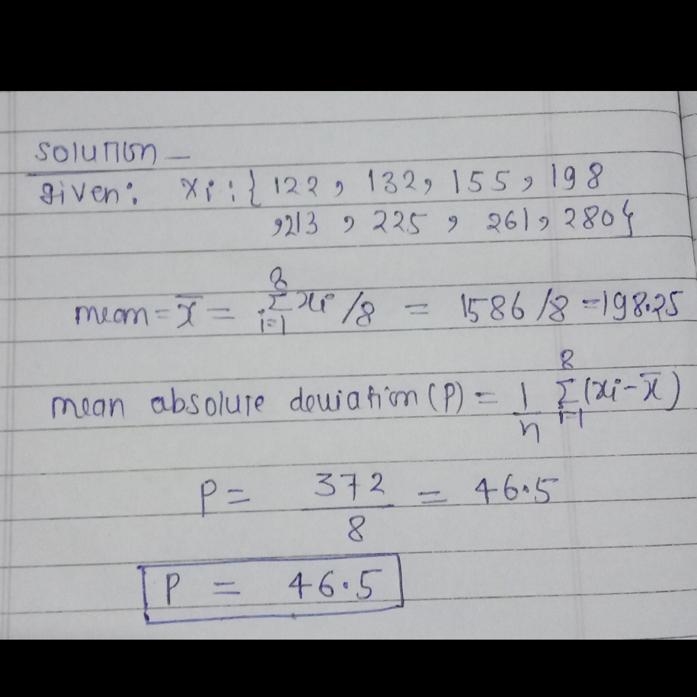 solution –
given: xi : { 122, 132, 155, 198
,213, 225, 261, 280}
mean = x̄ = 8Σi=1 xi /8 = 1586/8 = 198.25
mean absolute deviation (P) = 1/n 8Σi=1 (xi – x̄)
P = 372/8 = 46.5
P = 46.5